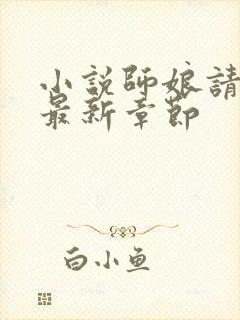 小說師娘請
最新章節
白小鱼